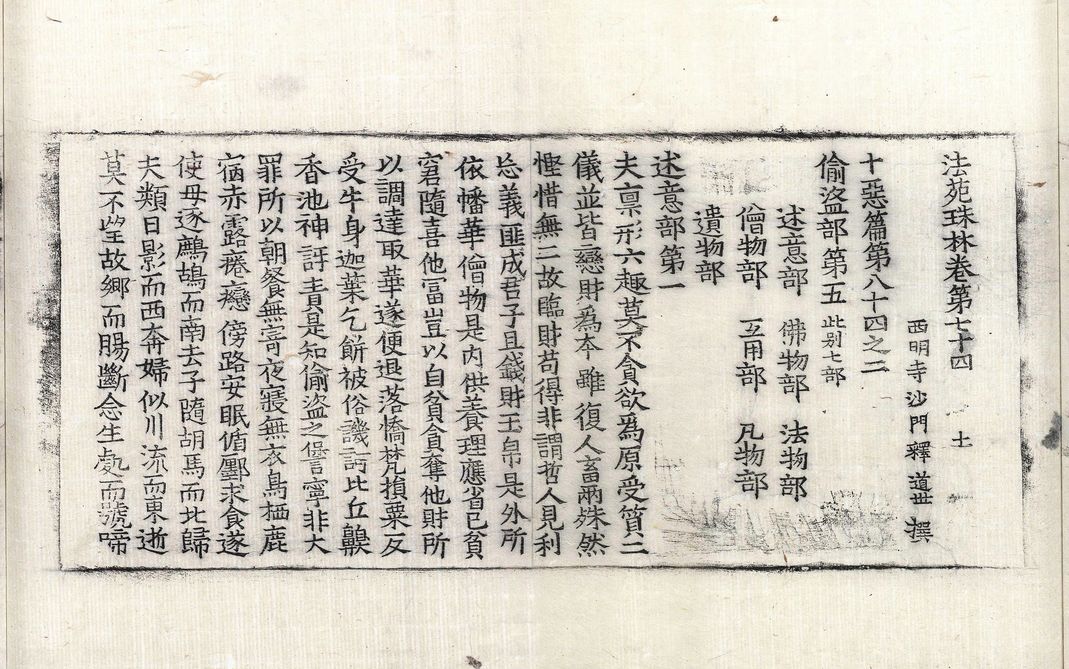 法苑珠林卷第七十四 士
西明寺沙門釋 道世 撰
十惡篇第八十四之二
偷盜部第五 此别七部
述意部 佛物部 法物部
僧物部 互用部 凡物部
遺物部
述意部第一
夫禀形六趣莫不貪欲爲原受質二
儀並皆戀財爲本雖復人畜兩殊然
慳惜無二故臨財苟得非謂哲人見利
忘義匪成君子且錢財玉帛是外所
依幡華僧物是内供養理應省已貧
窮隨喜他富豈以自貧貪奪他財所
以調達取華遂便退落憍梵損粟反
受牛身迦葉乞餅被俗譏訶比丘齅
香池神訶責是知偷盜之𠎝寧非大
罪所以朝餐無寄夜寢無衣鳥栖鹿
宿赤露癃癧傍路安眠循鄽求食遂
使母逐鷓鴣而南去子隨胡馬而北歸
夫類日影而西奔婦似川流而東逝
莫不望故鄉而腸斷念生處而號啼